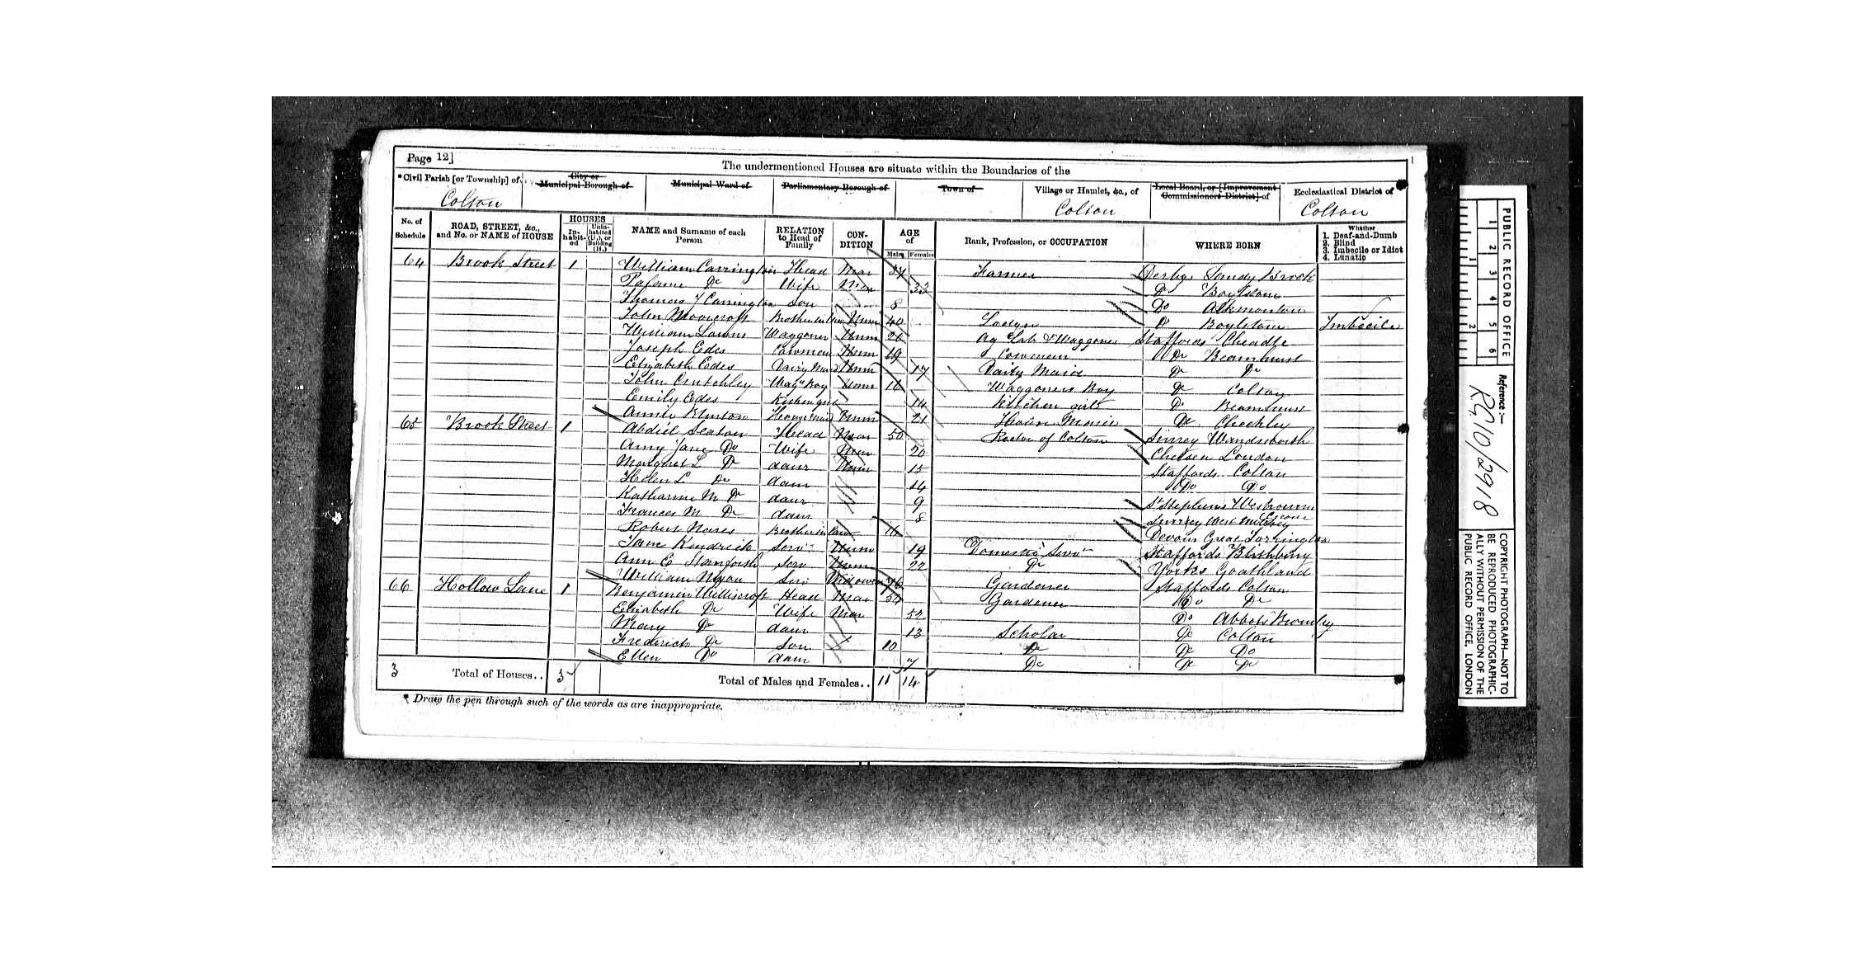 Page 12]
The undermentioned Houses are situate within the Boundaries of the
*Civil Parish [or Township] of City or Municipal Borough of Municipal Ward of Parliamentary Borough of Town of Village or Hamlet, &c., of Local Board, or [Improvement Commissioners District] of Ecclesiastical District of
Colton Colton Colton
No. of Schedule ROAD, STREET, &c., and No. or NAME of HOUSE HOUSES Inhabited Uninhabited (U.), or Building (B.) NAME and Surname of each Person RELATION to Head of Family CONDITION AGE of Males Females Rank, Profession, or OCCUPATION WHERE BORN Whether 1. Deaf-and-Dumb 2. Blind 3. Imbecile or Idiot 4. Lunatic
64 Brook Street 1 William Carrington Head Mar Farmer Derby Sandy Brook
Do Wife Mar 33 Do Boylstone
Thomas Carrington Son 8 Do Alkmonton
John Brother in law Unm 40 Do Boylstone Imbecile
William Waggoner Unm 20 Ag Lab & Waggoner Staffords Cheadle
Joseph Edes Cowman Unm 19 Cowman Do Bramhurst
Elizabeth Edes Dairy Maid Unm 17 Dairy Maid Do Do
John Crutchley Wagr Boy Unm 16 Waggoners Boy Do Colton
Emily Edes Kitchen girl 14 Kitchen girl Do Bramhurst
Annie Burton Housemaid Unm 21 House Maid Do Checkley
65 Brook Street 1 Abdiel Seaton Head Mar 50 Rector of Colton Surrey Wandsworth
Amy Jane Do Wife Mar Chelsea London
Margaret L Do daur Unm 15 Staffords Colton
Helen L Do daur 14 Do Do
Katharine M Do daur 9 St Stephens Westbourne
Frances M Do daur 8 Surrey West
Robert Brother in law 16 Devons Great Torrington
Jane Kendrick Serv Unm 19 Domestic Serv Staffords Blithbury
Ann E Serv Unm 22 Do Yorks Goathland
William Serv Widower 76 Gardener Staffords Colton
66 Hollow Lane 1 Benjamin Williscroft Head Mar Gardener Do Do
Elizabeth Do Wife Mar 52 Do Abbots Bromley
Mary Do daur 13 Scholar Do Colton
Frederick Do Son 10 Do Do Do
Ellen Do daur 7 Do Do Do
3 Total of Houses.. 3 Total of Males and Females.. 11 14
* Draw the pen through such of the words as are inappropriate.
PUBLIC RECORD OFFICE
1 2 3 4 5 6
1 2
Reference:-
RG10/2918
COPYRIGHT PHOTOGRAPH—NOT TO
BE REPRODUCED PHOTOGRAPHIC-
ALLY WITHOUT PERMISSION OF THE
PUBLIC RECORD OFFICE, LONDON